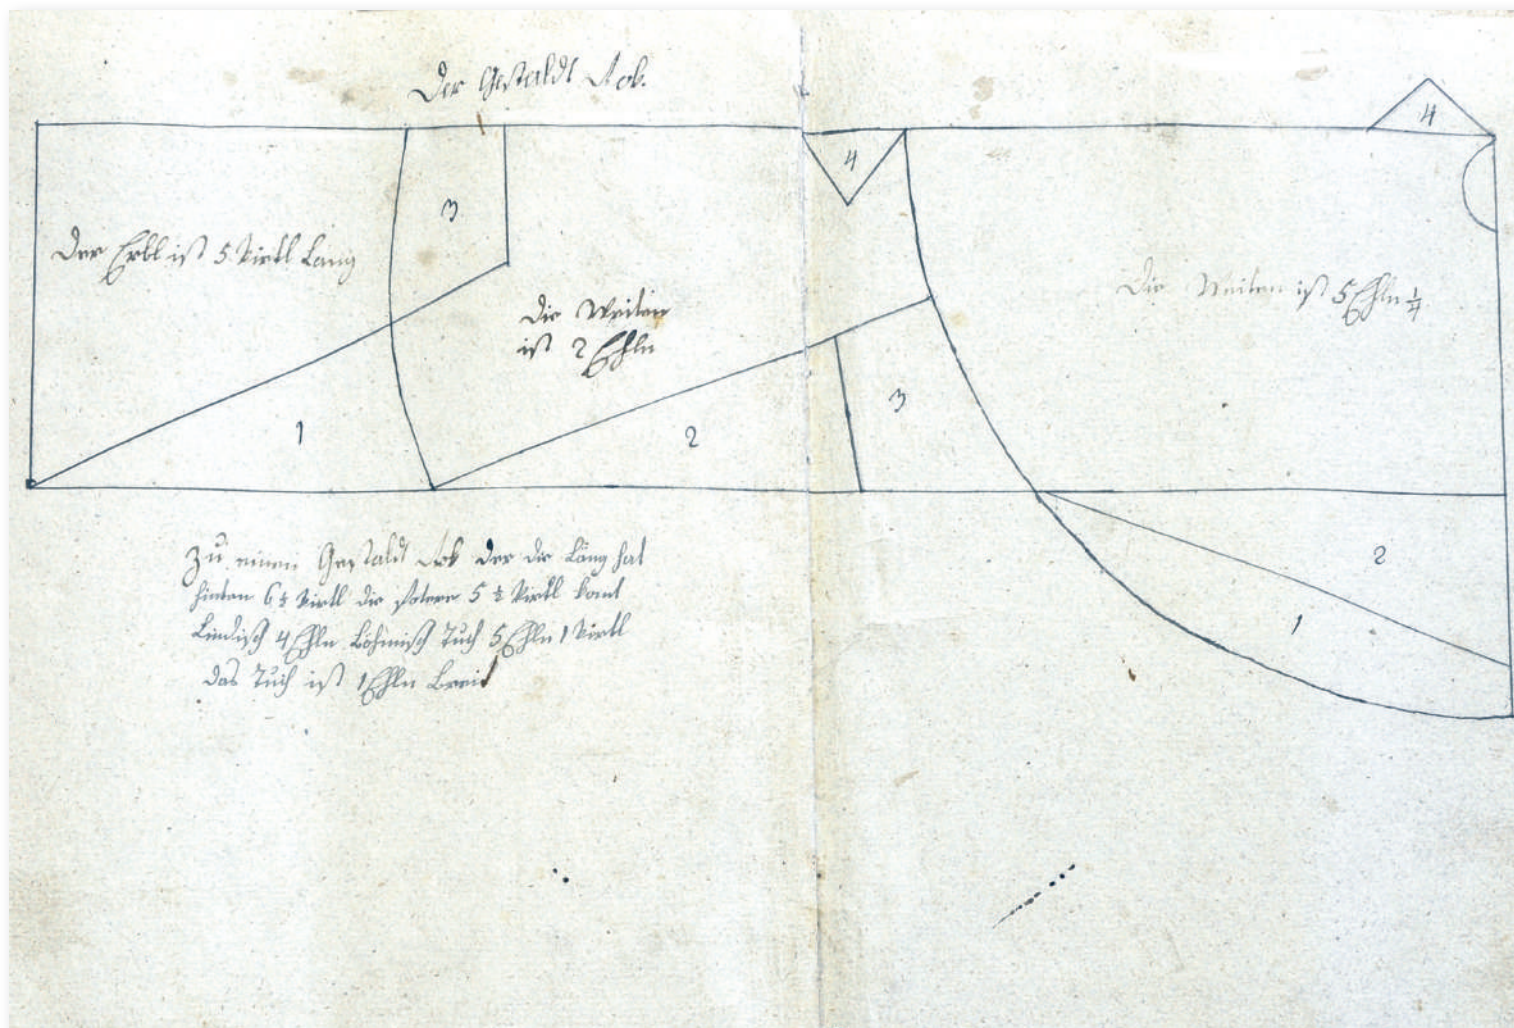 Der Gestaldt Rok.
4
4
3
Der Erbl ist 5 Virtl Lang
Die Weiten ist 5 Ehln 1/4
Die Weiten
ist 2 Ehln
3
1
2
2
1
Zu einen Gestaldt Rok der die Läng hat
hinten 6 1/2 Virtl die 5 1/2 Virtl komt
Lindisch 4 Ehln Böhmisch Tuch 5 Ehln 1 Virtl
das Tuch ist 1 Ehln Breit